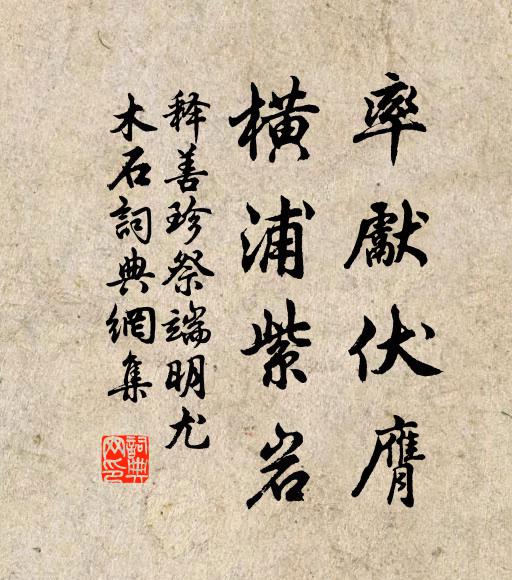 率獻伏膺
橫浦紫岩
释善珍祭端明尤
木石詞典網集
詞典
网印